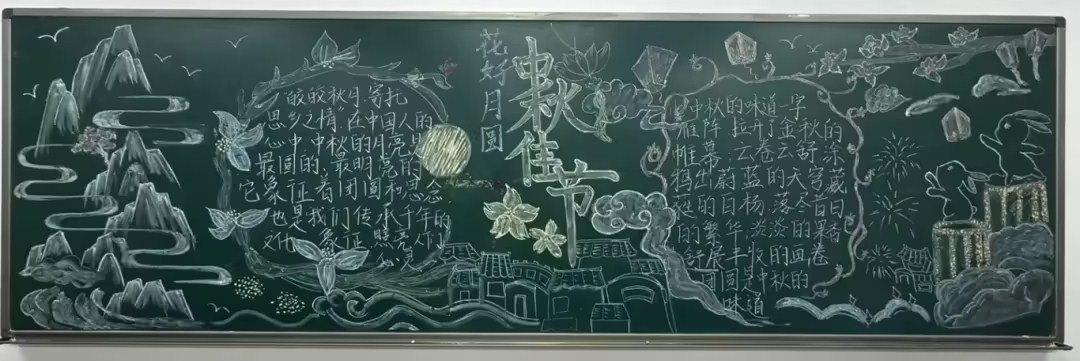 花好月圆
中秋佳节
皎皎秋月寄托
思乡之情在中国人的
心中中秋的月亮是
最圆的最明亮的
它象征着团圆和思念
也是我们传承千年的
文化象征照亮人们
中秋的味道一字
雁阵拉开了金秋的
帷幕云卷云舒涂
出蔚蓝的天穹葳
的白杨落尽昔日
的繁华淡淡的果香
舒展丰收的画卷
团圆是中秋的
味道